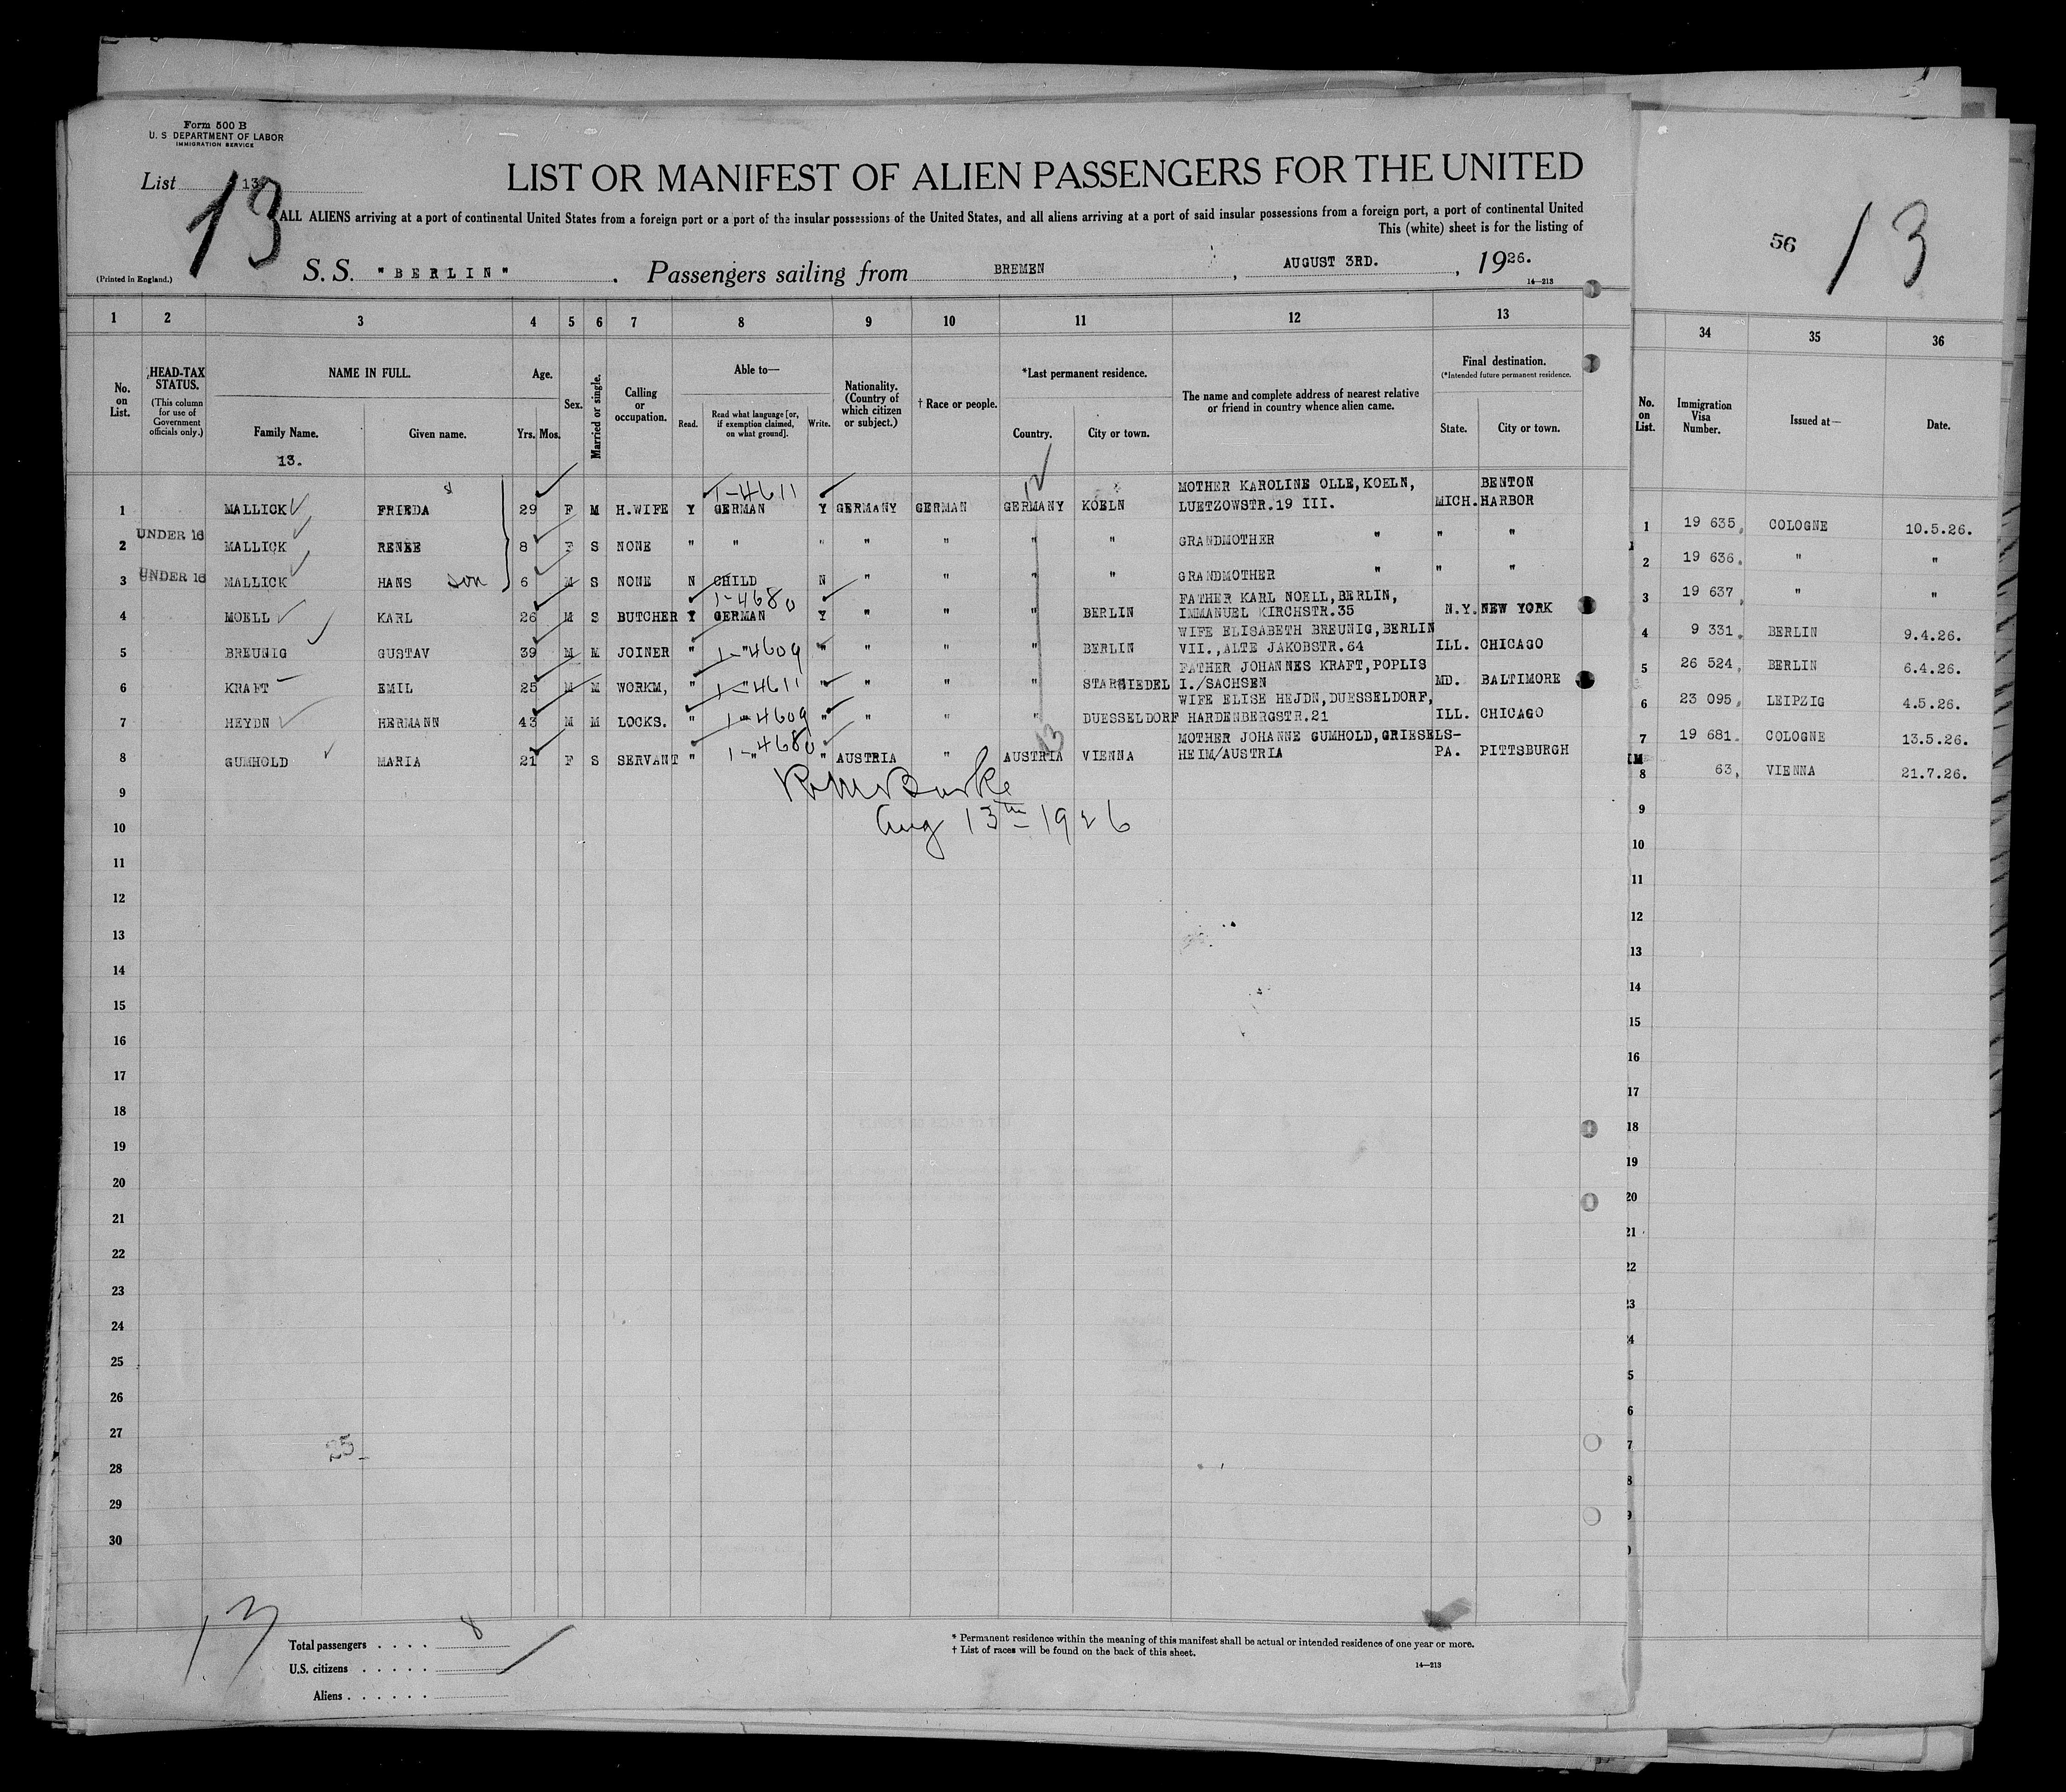 Form 500 B
U. S DEPARTMENT OF LABOR
IMMIGRATION SERVICE
List 13
13
LIST OR MANIFEST OF ALIEN PASSENGERS FOR THE UNITED
ALL ALIENS arriving at a port of continental United States from a foreign port or a port of the insular possessions of the United States, and all aliens arriving at a port of said insular possessions from a foreign port, a port of continental United
This (white) sheet is for the listing of
(Printed in England.)
S. S. "BERLIN". Passengers sailing from BREMEN, AUGUST 3RD., 1926.
14—213
56 13
1 2 3 4 5 6 7 8 9 10 11 12 13
34 35 36
No. on List.
HEAD-TAX STATUS. (This column for use of Government officials only.)
NAME IN FULL.
Family Name. Given name.
13.
Age.
Yrs. Mos.
Sex.
Married or single.
Calling or occupation.
Able to—
Read. Read what language [or, if exemption claimed, on what ground]. Write.
Nationality. (Country of which citizen or subject.)
† Race or people.
*Last permanent residence.
Country. City or town.
The name and complete address of nearest relative or friend in country whence alien came.
Final destination.
(*Intended future permanent residence.
State. City or town.
No. on List. Immigration Visa Number. Issued at— Date.
1-4611
12
1 MALLICK FRIEDA 29 F M H.WIFE Y GERMAN Y GERMANY GERMAN GERMANY KOELN MOTHER KAROLINE OLLE,KOELN, LUETZOWSTR.19 III. MICH. BENTON HARBOR
2 UNDER 16 MALLICK RENEE 8 F S NONE " " " " " " " GRANDMOTHER " " "
3 UNDER 16 MALLICK HANS son 6 M S NONE N CHILD N " " " " GRANDMOTHER " " "
1-4680
4 MOELL KARL 26 M S BUTCHER Y GERMAN Y " " " BERLIN FATHER KARL NOELL,BERLIN, IMMANUEL KIRCHSTR.35 N.Y. NEW YORK
5 BREUNIG GUSTAV 39 M M JOINER " 1-"4609 " " " " BERLIN WIFE ELISABETH BREUNIG,BERLIN VII.,ALTE JAKOBSTR.64 ILL. CHICAGO
6 KRAFT EMIL 25 M M WORKM, " 1-"4611 " " " " STARSIEDEL FATHER JOHANNES KRAFT,POPLIS I./SACHSEN MD. BALTIMORE
7 HEYDN HERMANN 43 M M LOCKS. " 1-"4609 " " " " DUESSELDORF WIFE ELISE HEJDN,DUESSELDORF, HARDENBERGSTR.21 ILL. CHICAGO
1-4680
13
8 GUMHOLD MARIA 21 F S SERVANT " " " AUSTRIA " AUSTRIA VIENNA MOTHER JOHANNE GUMHOLD,GRIESELS- HEIM/AUSTRIA PA. PITTSBURGH
1 19 635, COLOGNE 10.5.26.
2 19 636, " "
3 19 637, " "
4 9 331, BERLIN 9.4.26.
5 26 524, BERLIN 6.4.26.
6 23 095, LEIPZIG 4.5.26.
7 19 681. COLOGNE 13.5.26.
8 63, VIENNA 21.7.26.
Aug 13th 1926
9
10
11
12
13
14
15
16
17
18
19
20
21
22
23
24
25
26
27
25
28
29
30
13
Total passengers . . . . 8
U.S. citizens . . . . .
Aliens . . . . . .
* Permanent residence within the meaning of this manifest shall be actual or intended residence of one year or more.
† List of races will be found on the back of this sheet.
14—213